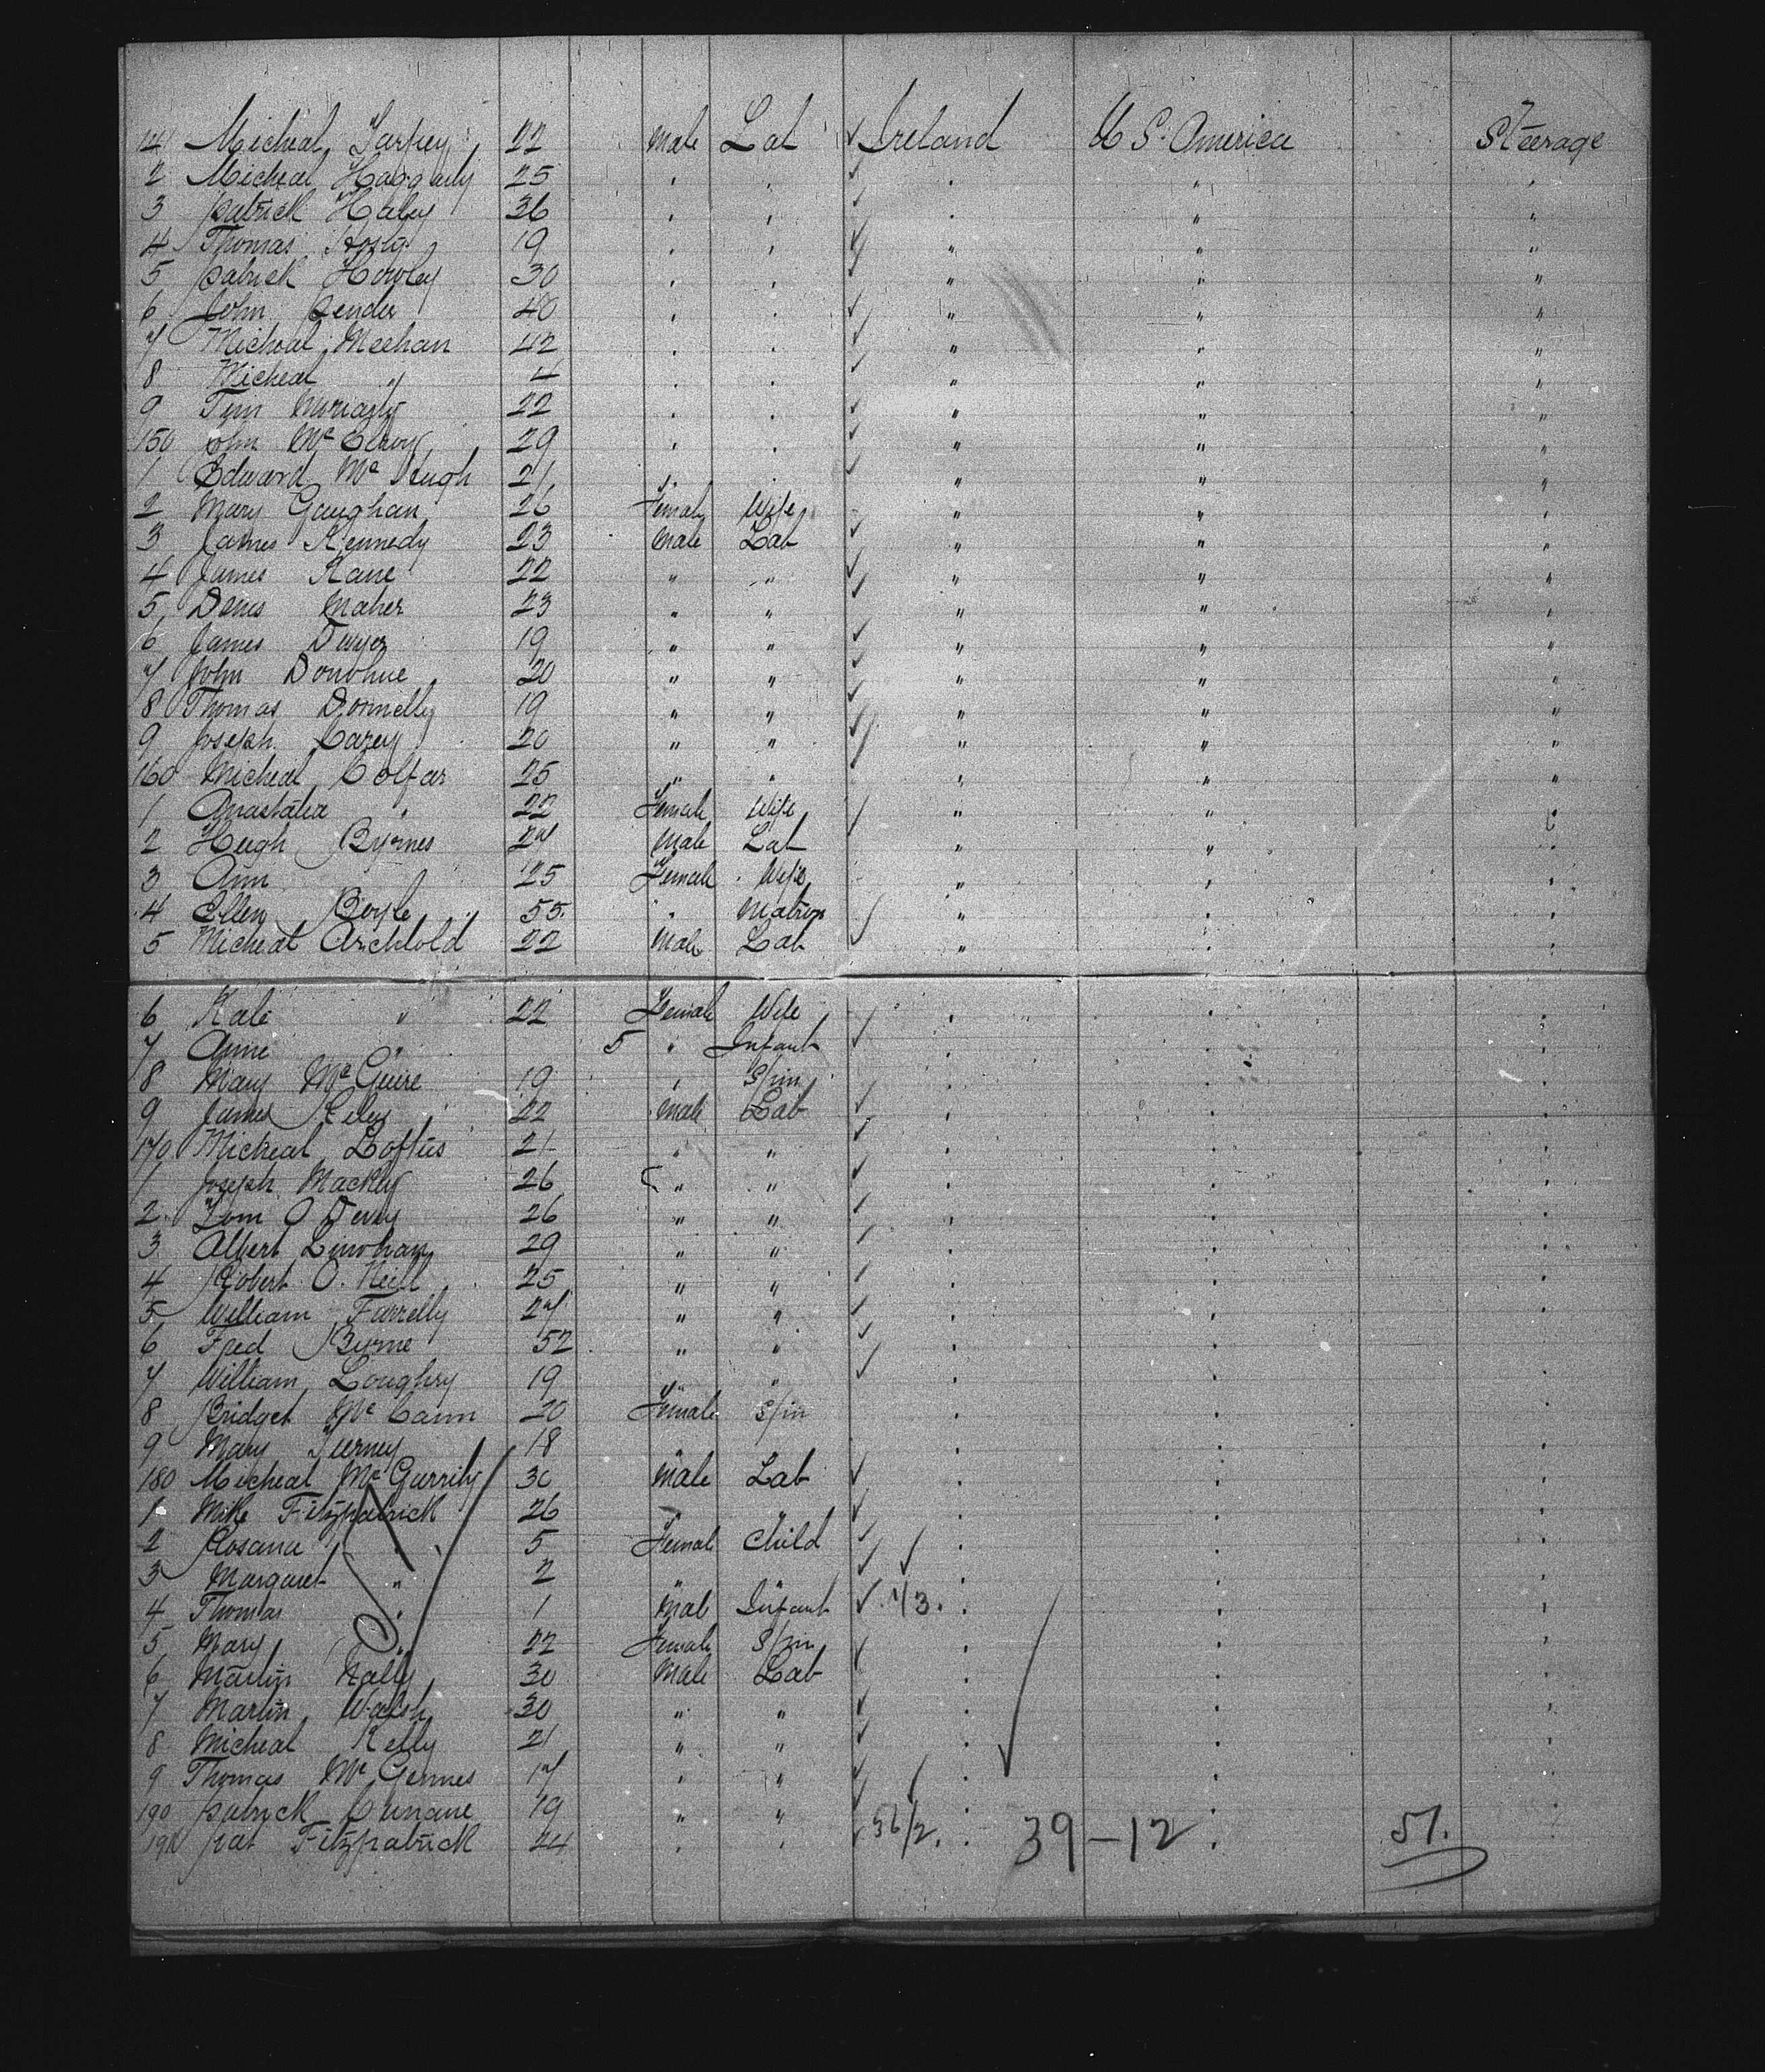 141 Micheal Tarpey 22 Male Lab ✓ Ireland U S. America Steerage
2 Micheal Haggarty 25 " " ✓ " " "
3 Patrick Haley 36 " " ✓ " " "
4 Thomas 19 " " ✓ " " "
5 Patrick Howley 30 " " ✓ " " "
6 John 40 " " ✓ " " "
7 Micheal Meehan 42 " " ✓ " " "
8 Micheal " 4 " " ✓ " " "
9 Tim Moriarty 22 " " ✓ " " "
150 John Mc 29 " " ✓ " " "
1 Edward Mc Hugh 21 " " ✓ " " "
2 Mary Gaughan 26 Female Wife " " "
3 James Kennedy 23 Male Lab ✓ " " "
4 James Kane 22 " " ✓ " " "
5 Denis Maher 23 " " ✓ " " "
6 James Dwyer 19 " " ✓ " " "
7 John Donohue 20 " " ✓ " " "
8 Thomas Donnelly 19 " " ✓ " " "
9 Joseph Carey 20 " " ✓ " " "
160 Micheal Colfar 25 " " " " "
1 Anastatia " 22 Female Wife ✓ " " "
2 Hugh Byrnes 27 Male Lab " " "
3 Ann 25 Female Wife " " "
4 Ellen Boyle 55 " Matron ✓ " " "
5 Micheal Archbold 22 Male Lab " " "
6 Kate " 22 Female Wife ✓ " " "
7 Anne " 5 " Infant " " "
8 Mary McGuire 19 " Spin " " "
9 James Kiley 22 Male Lab ✓ " " "
170 Micheal Loftus 21 " " ✓ " " "
1 Joseph Mackey 26 " " ✓ " " "
2 Tom O 26 " " ✓ " " "
3 Albert Linehan 29 " " ✓ " " "
4 Robert O. Neill 25 " " ✓ " " "
5 William Farrelly 27 " " ✓ " " "
6 Fred Byrne 52 " " ✓ " " "
7 William Loughry 19 " " ✓ " " "
8 Bridget McCann 20 Female Spin " " "
9 Mary Tierney 18 " " " " "
180 Micheal McGarrity 30 Male Lab ✓ " " "
1 Mike Fitzpatrick 26 " " ✓ " " "
2 Rosana " 5 Female Child ✓ " " "
3 Margaret " 2 " " ✓ ✓ " " "
4 Thomas " 1 Mal Infant ✓ 1/3. " " "
5 Mary " 22 Female Spin " " "
6 Martin Nally 30 Male Lab ✓ " " "
7 Martin Walsh 30 " " ✓ " " "
8 Micheal Kelly 21 " " ✓ " " "
9 Thomas McGennes 17 " " ✓ " " "
190 Patrick Cunane 19 " " ✓ " " "
191 Pat Fitzpatrick 24 " " ✓ 56/2. " 39-12 " 51.